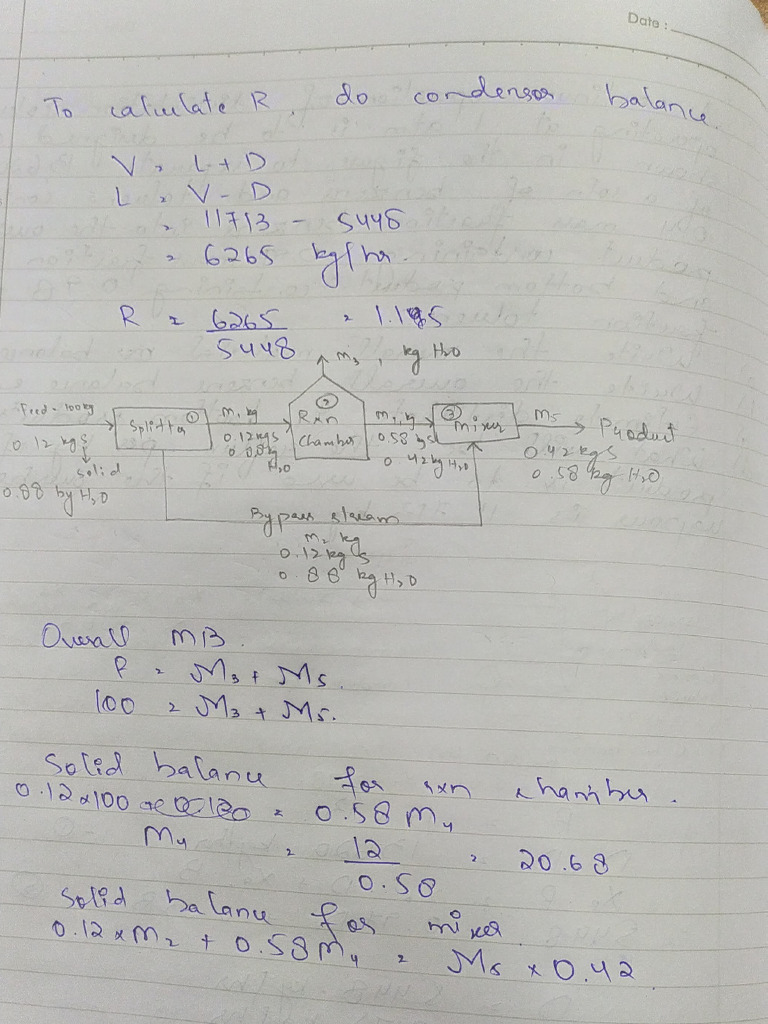 Date :
To calculate R, do condensor balance.
V = L + D
L = V - D
= 11713 - 5448
= 6265 kg/hr.
R = 6265 / 5448 = 1.15
M3, kg H2O
Feed = 100kg
0.12 kg S
solid
0.88 kg H2O
Splitter ①
M1 kg
0.12 kg S
0.88 kg H2O
② Rxn chamber
M4 kg
0.58 kg S
0.42 kg H2O
③ mixer
M5
Product
0.42 kg S
0.58 kg H2O
Bypass stream
M2 kg
0.12 kg S
0.88 kg H2O
Overall MB.
F = M3 + M5.
100 = M3 + M5.
Solid balance for rxn chamber.
0.12 x 100 = 0.58 M4
M4 = 12 / 0.58 = 20.68
Solid balance for mixer
0.12 x M2 + 0.58 M4 = M5 x 0.42